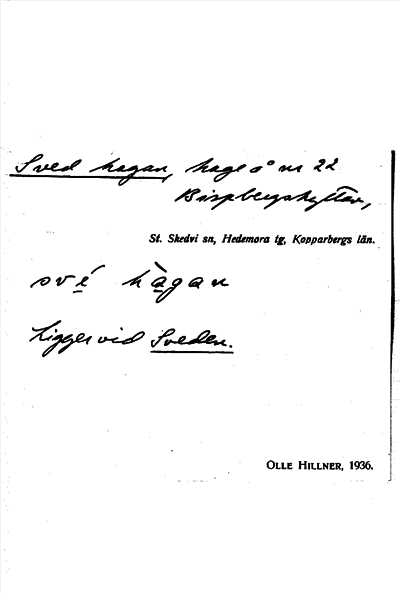 Sved hagan, hage å nr 22
Bispbergshyttan,
St. Skedvi sn, Hedemora tg, Kopparbergs län.
své hàgan
Ligger vid Sveden.
OLLE HILLNER, 1936.